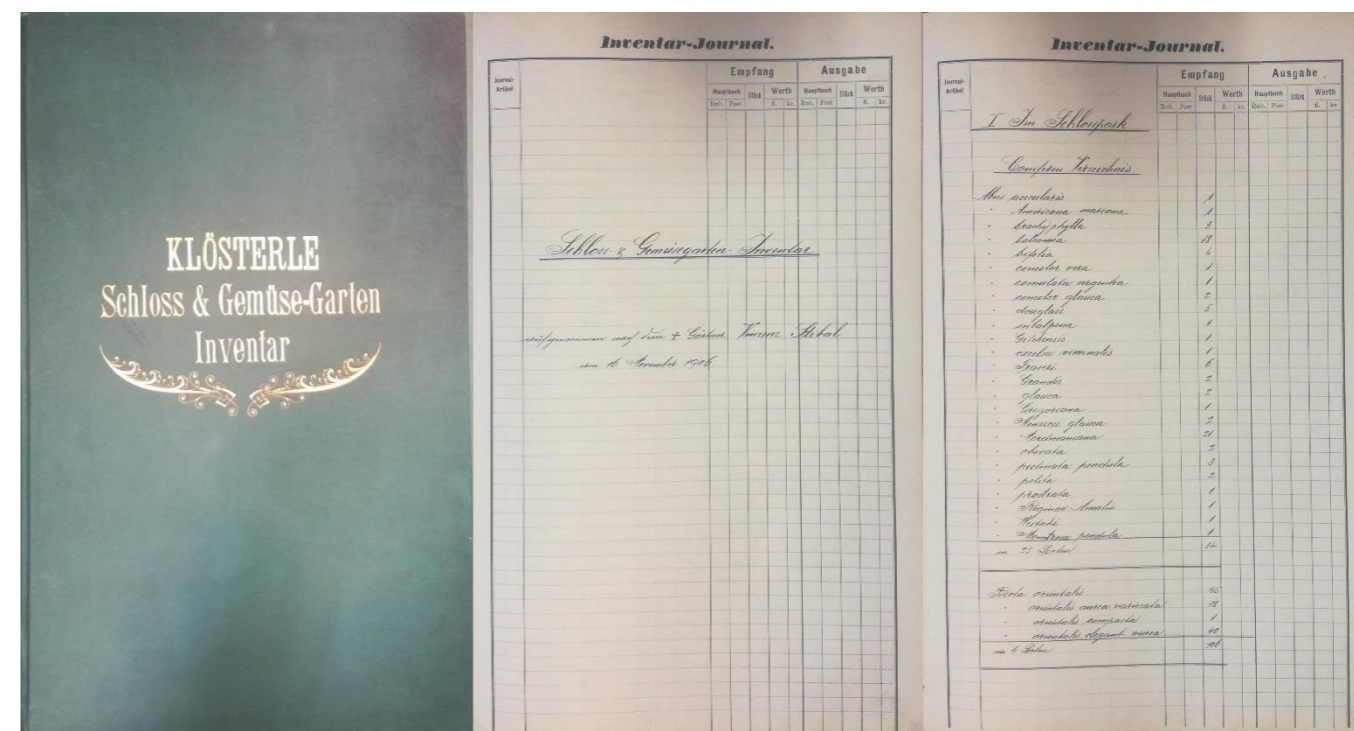 KLÖSTERLE
Schloss & Gemüse-Garten
Inventar
Inventar-Journal.
Journal-Artikel
Empfang
Ausgabe
Hauptbuch Stück Werth Hauptbuch Stück Werth
Rub. Post fl. kr. Rub. Post fl. kr.
Schloss- & Gemüsegarten-Inventar
aufgenommen nach dem † Gärtner Vinzenz Stibal
am 16. November 1906.
Inventar-Journal.
Journal-Artikel
Empfang
Ausgabe
Hauptbuch Stück Werth Hauptbuch Stück Werth
Rub. Post fl. kr. Rub. Post fl. kr.
I Im Schlosspark
Coniferen Verzeichnis
Abies 1
" Americana 1
" brachyphylla 3
" 18
" 4
" concolor 1
" argentea 1
" concolor glauca 2
" douglasi 5
" subalpina 1
" 1
" excelsa viminalis 1
" Fraseri 6
" Grandis 2
" glauca 2
" Gregoriana 1
" Menziesi glauca 2
" Nordmanniana 21
" obovata 2
" pectinata pendula 3
" polita 2
" prostrata 1
" Reginae Amalie 1
" 1
" pendula 1
in 25 Sorten
Biota orientalis 45
" orientalis aurea
" orientalis compacta 1
" orientalis elegant. aurea 40
in Sorten 106